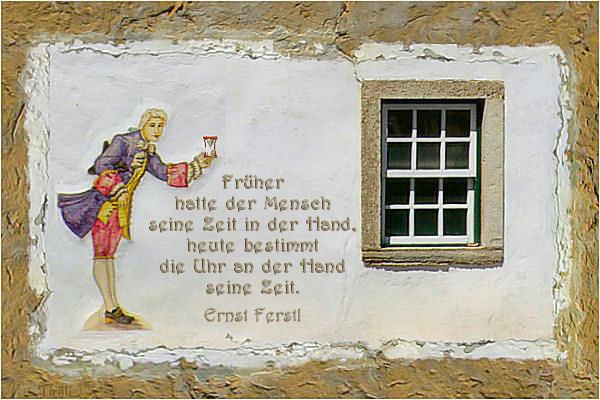 Früher
hatte der Mensch
seine Zeit in der Hand,
heute bestimmt
die Uhr an der Hand
seine Zeit.
Ernst Ferstl
Tirilli